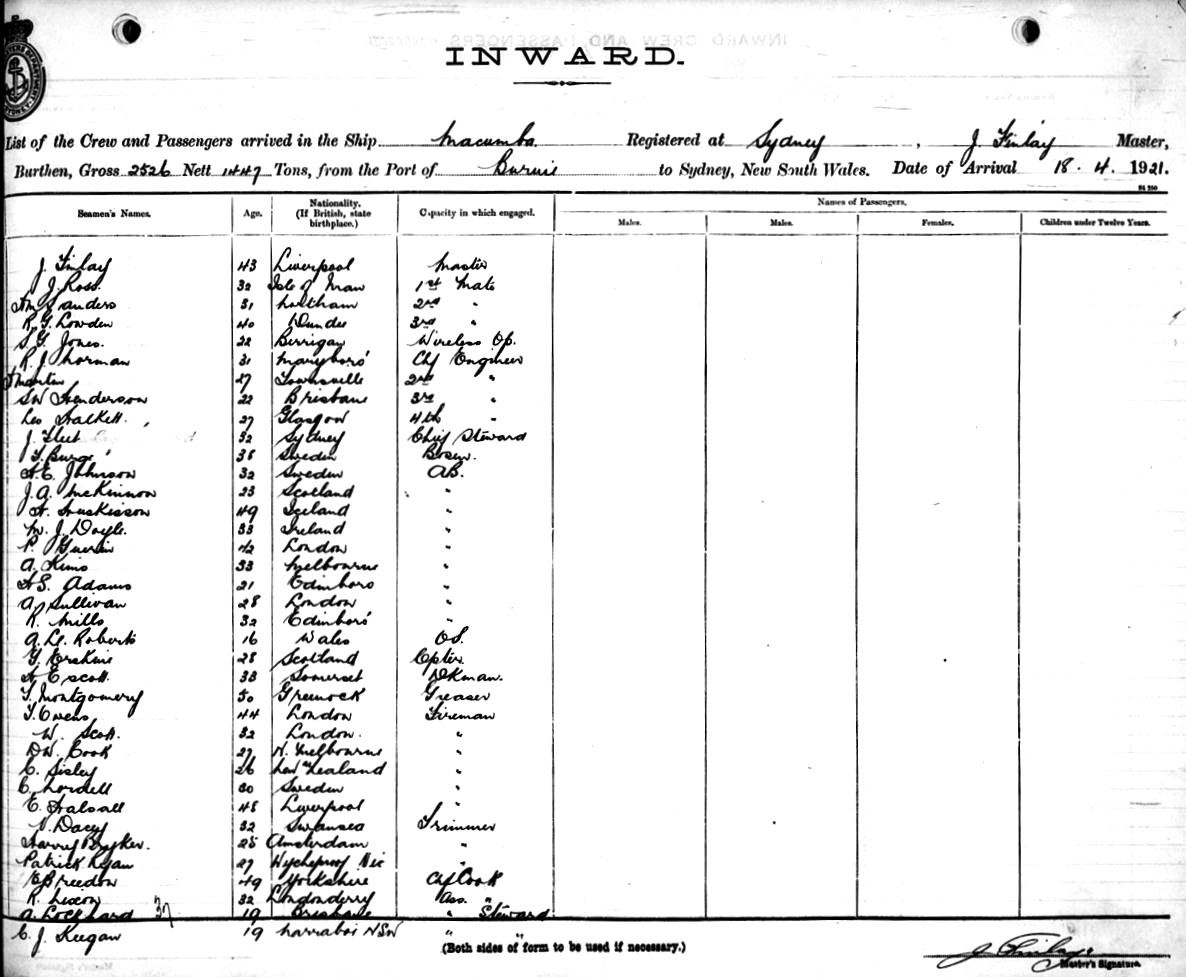 INWARD.
List of the Crew and Passengers arrived in the Ship Macumba Registered at Sydney, J Finlay Master,
Burthen, Gross 2526 Nett 1447 Tons, from the Port of Burnie to Sydney, New South Wales. Date of Arrival 18. 4. 1921.
Seamen's Names. Age. Nationality. (If British, state birthplace.) Capacity in which engaged. Names of Passengers.
Males. Males. Females. Children under Twelve Years.
J. Finlay 43 Liverpool Master
J. Ross. 32 Isle of Man 1st Mate
Sanders 31 2nd "
R. G. Lowden 40 Dundee 3rd "
S. G. Jones. 22 Berrigan Wireless Op.
R. J. Thorman 31 Maryboro' Chf Engineer
Martin 27 Townsville 2nd "
SW Henderson 22 Brisbane 3rd "
Leo Halkett. 27 Glasgow 4th "
J. Fleet 32 Sydney Chief Steward
T. Burge 38 Sweden Bosen.
A. E. Johnson 32 Sweden AB.
J. A. McKinnon 23 Scotland "
A. Huskisson 49 Iceland "
M. J. Doyle. 33 Ireland "
P. Guerin 42 London "
A. Kims 33 Melbourne "
A S. Adams 21 Edinboro "
A. Sullivan 28 London "
R. Mills 32 Edinboro' "
A. Ll. Roberts 16 Wales OS.
G. Erskine 28 Scotland
A Escott. 38 Somerset Dkman.
T. Montgomery 50 Greenock Greaser
T. Owens 44 London Fireman
W. Scott. 32 London. "
DW. Cook 27 N. Melbourne "
C. Sisley 26 New Zealand "
C. Nordell 30 Sweden "
E. Halsall 48 Liverpool "
Dacey 32 Swansea Trimmer
Harry 25 Amsterdam "
Patrick Ryan 27 Wycheproof Vic "
Breedon 49 Yorkshire Chf Cook
R. Nixon 32 Londonderry Ass. "
A. Lockhard 37 19 Brisbane " Steward
C. J. Keegan 19 Narrabri NSW " "
(Both sides of form to be used if necessary.)
J Finlay
Master's Signature.